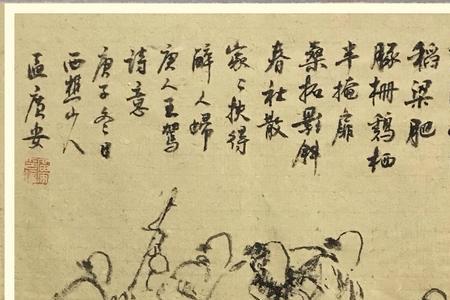 稻粱肥
豚柵鷄栖
半掩扉
桑柘影斜
春社散
家々扶得
醉人歸
唐人王駕
詩意
庚子冬日
西樵山人
區廣安